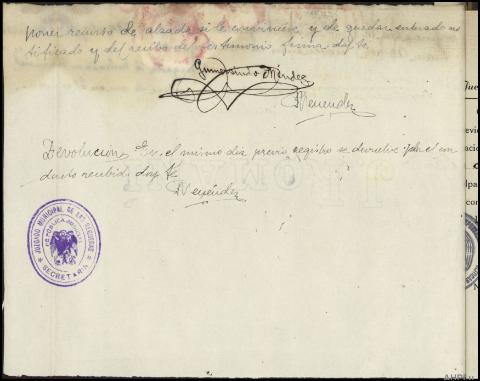 poner recurso de alzada si le conviniere, y de quedar enterado no
tificado y del recibo del testimonio, firma doy fe
Gumersindo Méndez
Menendez
Devolucion En el mismo dia previo registro se devuelve por el con
ducto recibido doy fe
Menéndez
JUZGADO MUNICIPAL DE LAS REGUERAS
SECRETARIA